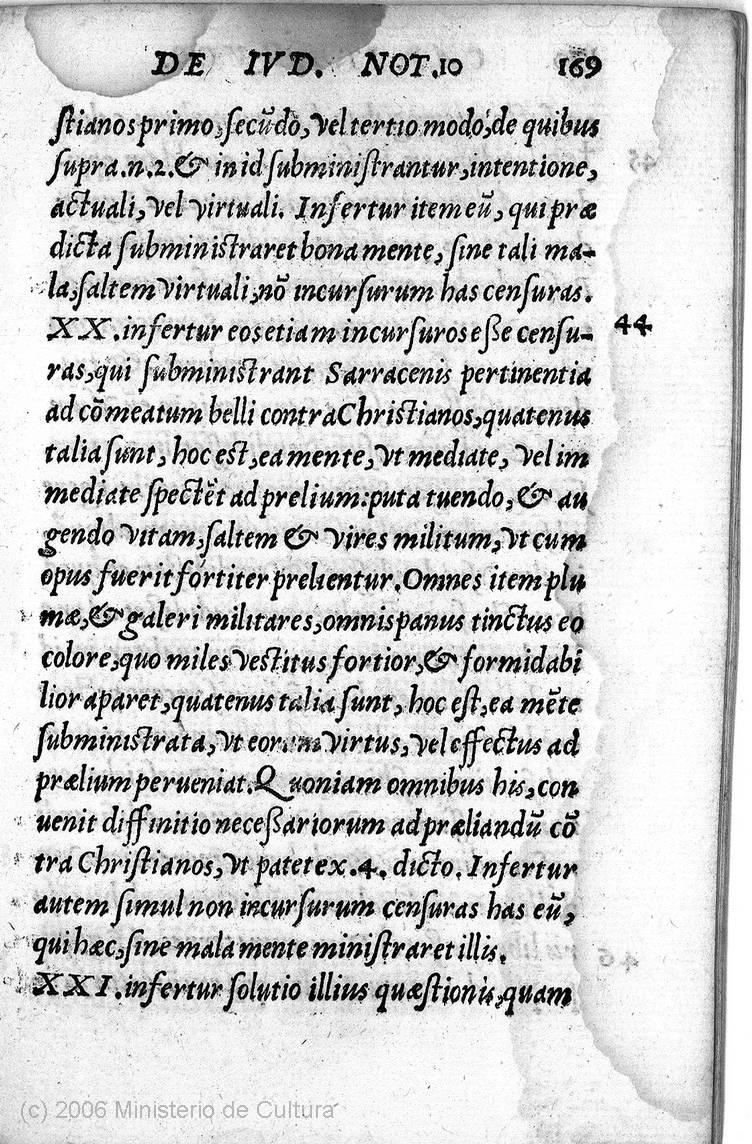 DE IVD. NOT.10 169
ſtianos primo, ſecūdo, vel tertio modo, de quibus
ſupra.n.2.& in id ſubminiſtrantur, intentione,
actuali, vel virtuali. Infertur item eū, qui præ
dicta ſubminiſtraret bona mente, ſine tali ma-
la, ſaltem virtuali, nō incurſurum has cenſuras.
XX. infertur eos etiam incurſuros eſſe cenſu- 44
ras, qui ſubminiſtrant Sarracenis pertinentia
ad cōmeatum belli contra Chriſtianos, quatenus
talia ſunt, hoc est, ea mente, vt mediate, vel im
mediate ſpectēt ad prelium: puta tuendo, & au
gendo vitam, ſaltem & vires militum, vt cum
opus fuerit fortiter prelientur. Omnes item plu
mæ, & galeri militares, omnis panus tinctus eo
colore, quo miles veſtitus fortior, & formidabi
lior aparet, quatenus talia ſunt, hoc eſt, ea mēte
ſubminiſtrata, vt eorum virtus, vel effectus ad
prælium perueniat. Quoniam omnibus his, con
uenit diffinitio neceſſariorum ad præliandū cō
tra Chriſtianos, vt patet ex.4. dicto. Infertur
autem ſimul non incurſurum cenſuras has eū,
qui hæc, ſine mala mente miniſtraret illis.
XXI. infertur ſolutio illius quæſtionis, quam
(c) 2006 Ministerio de Cultura